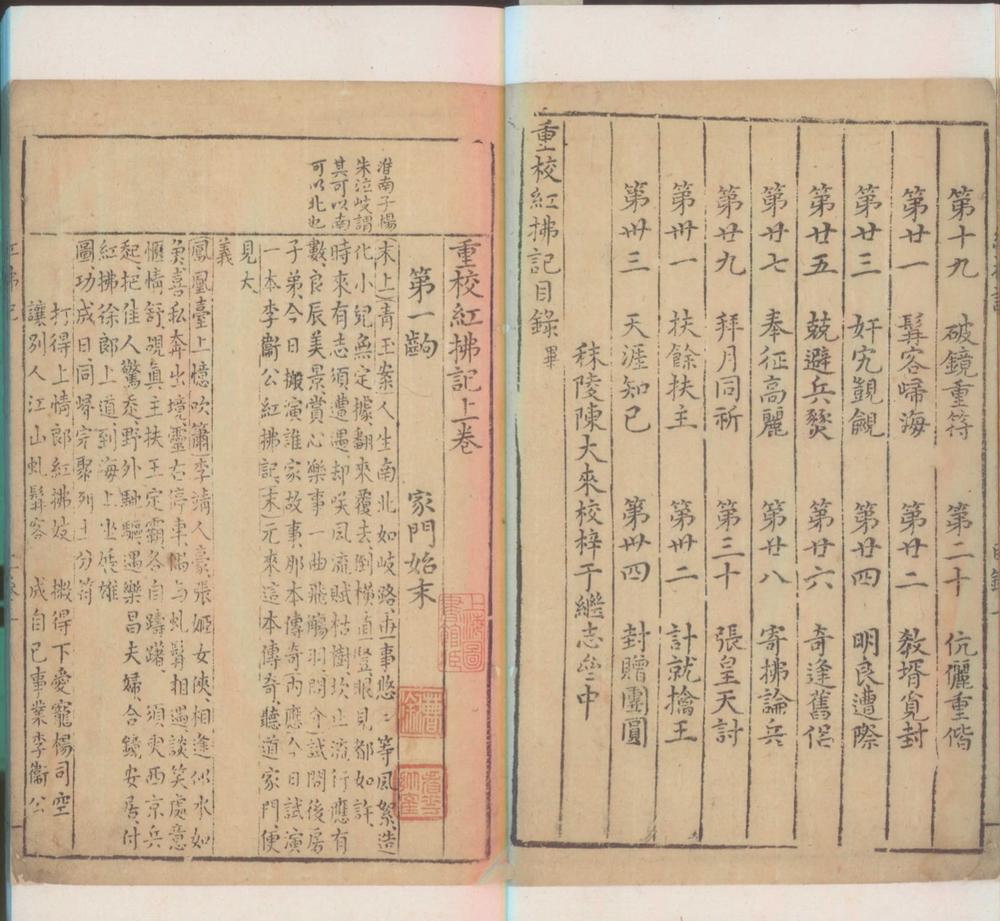 第十九 破鏡重符 第二十 伉儷重偕
第廿一 髯客歸海 第廿二 教壻覓封
第廿三 奸宄覬覦 第廿四 明良遭際
第廿五 兢避兵燹 第廿六 奇逢舊侶
第廿七 奉征高麗 第廿八 寄拂論兵
第廿九 拜月同祈 第三十 張皇天討
第卅一 扶餘扶主 第卅二 計就擒王
第卅三 天涯知己 第卅四 封贈團圓
秣陵陳大來校梓于繼志齋中
重校紅拂記目錄畢
重校紅拂記上卷
第一齣 家門始末
淮南子楊
朱泣岐謂
其可以南
可以北也
末上青玉案人生南北如岐路再事悠々等風絮造
化小兒無定據翻來覆去倒橫直豎眼見都如許
時來有志須遭遇却咲風流賦枯樹坎止流行應有
數良辰美景賞心樂事一曲飛觴羽問介試問後房
子弟今日搬演誰家故事那本傳奇內應介今日試演
一本李衞公紅拂記末元來這本傳奇聽道家門便
見大
義
鳳凰臺上憶吹簫李靖人豪張姬女俠相逢似水如
魚喜私奔出境靈右停車偶与虬髯相遇談笑處意
愜情舒覘真主扶王定霸各自躊躇須臾西京兵
起把佳人驚委野外馳驅遇樂昌夫婦合鏡安居付
紅拂徐郎上道到海上坐   雄
圖功成日同歸完聚列土分符
打得上情郎紅拂妓 搬得下愛寵楊司空
讓別人江山虬髯客 成自己事業李衞公
上海圖
書館藏